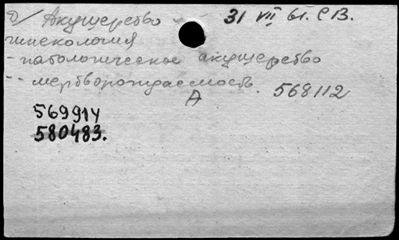 б/ Акушерство - 31 VII 61. СВ.
гинекология
- патологическое акушерство
-- мертворождаемость 568112
А
569914
580483.